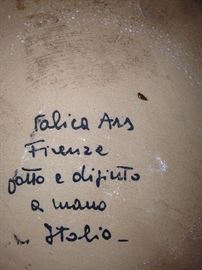 Falica Ars
Firenze
fatto e dipinto
a mano
Italia